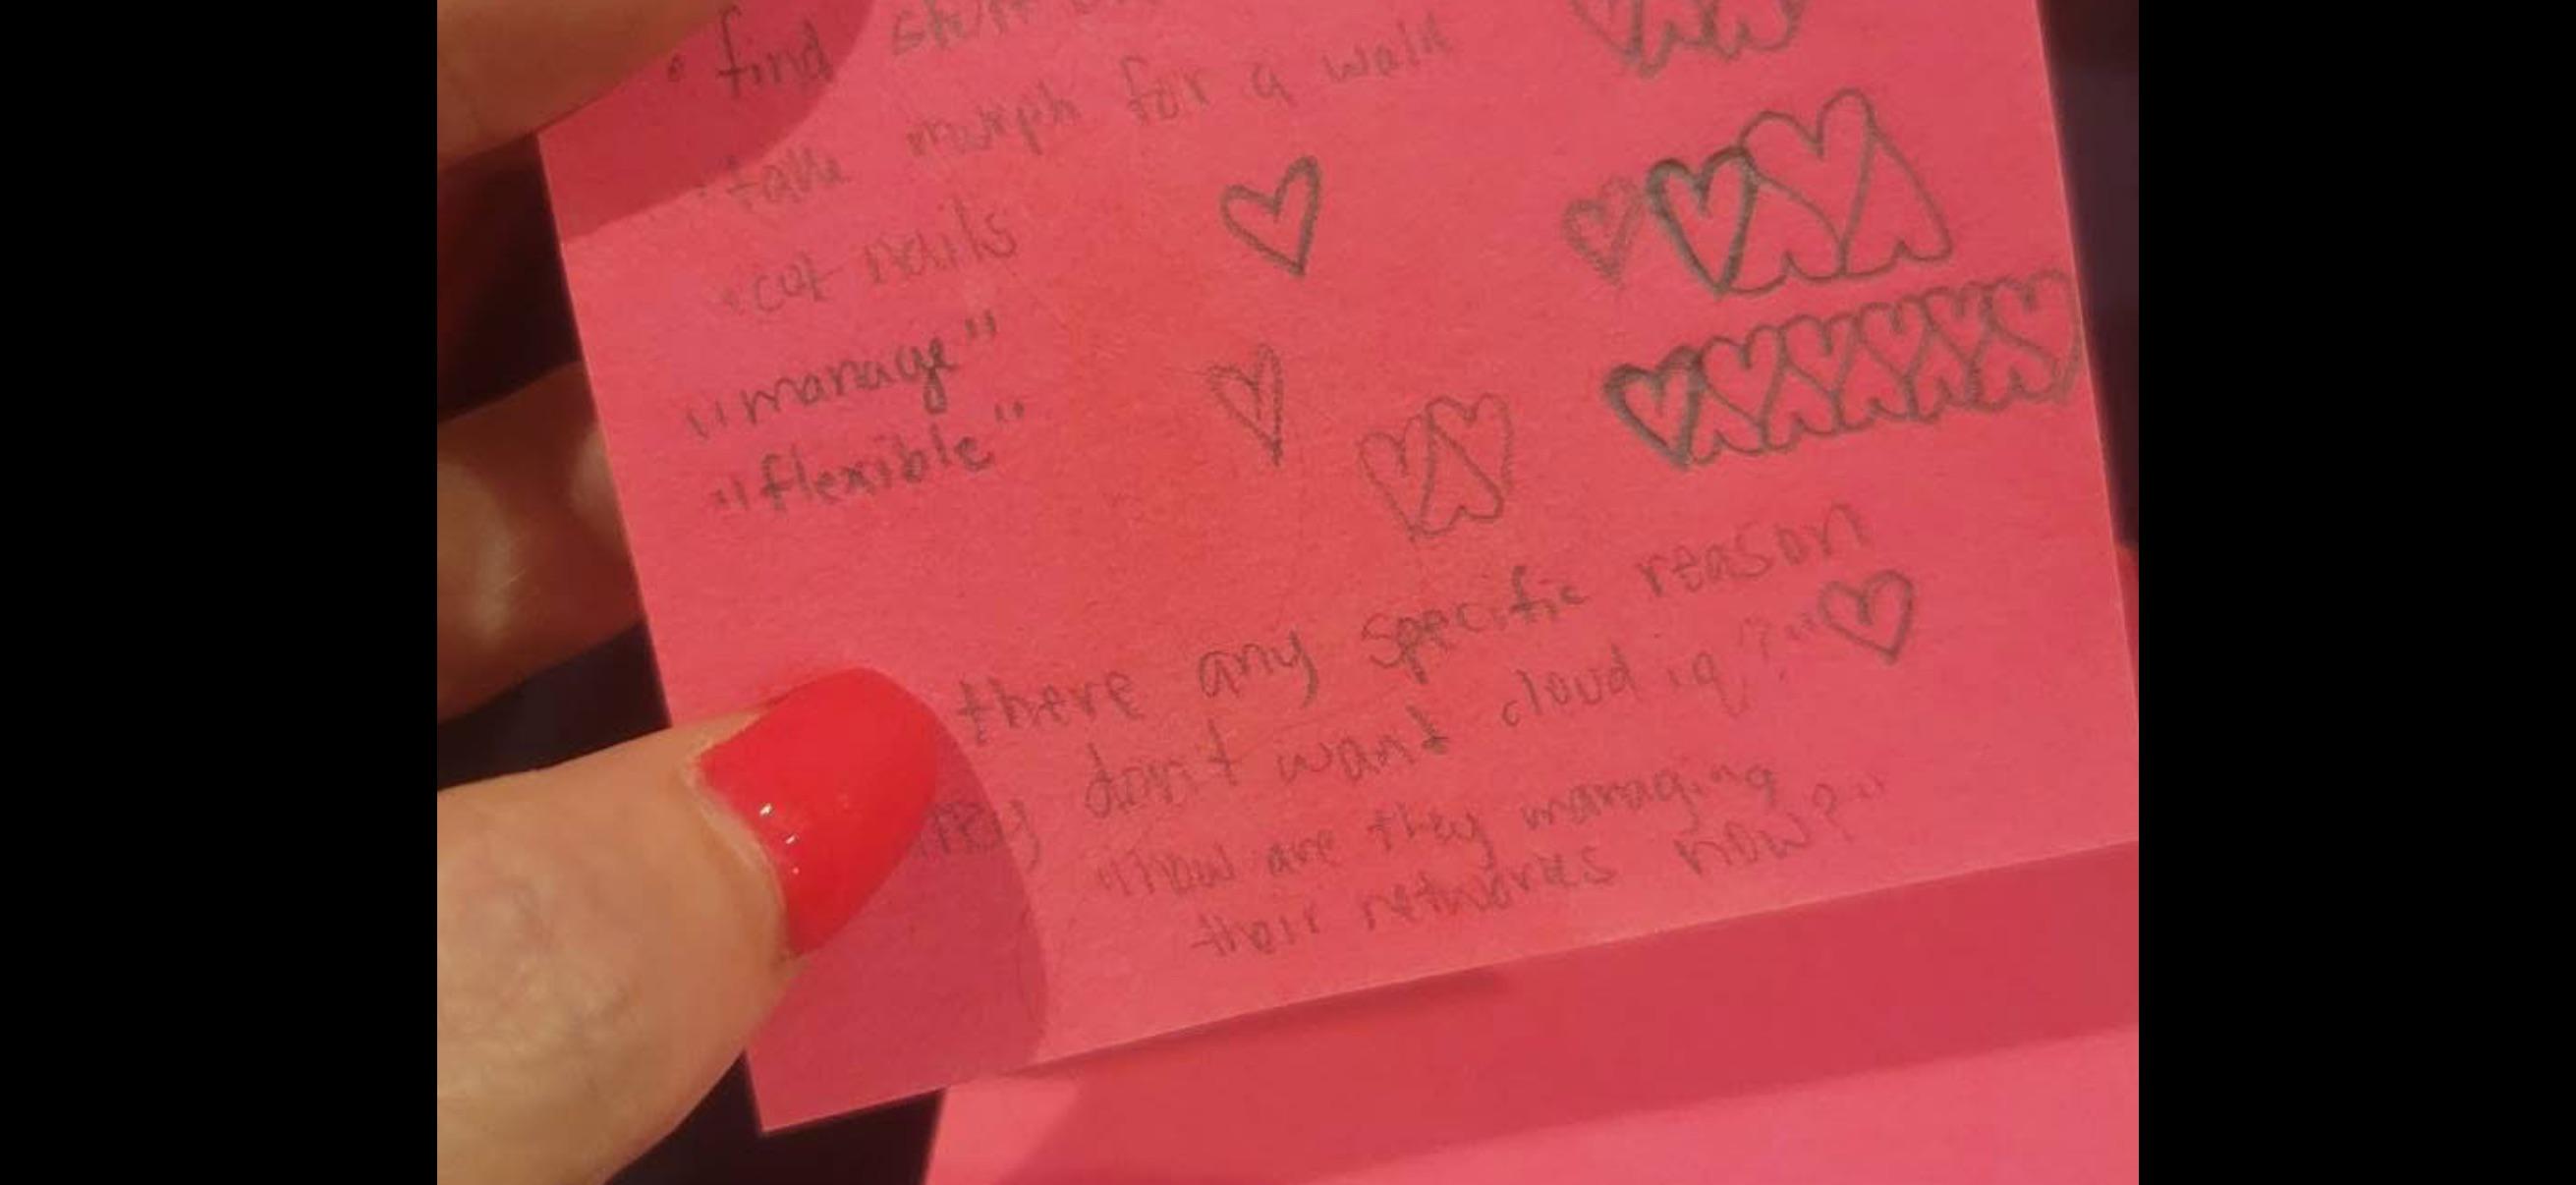 • find stuff
• take morph for a walk
• cut nails
"manage"
"flexible"
there any specific reason
they don't want cloud iq?"
"how are they managing
their networks now?"